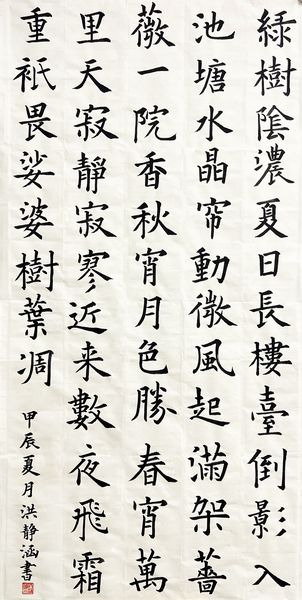 綠樹陰濃夏日長樓臺倒影入
池塘水晶帘動微風起滿架薔
薇一院香秋宵月色勝春宵萬
里天寂靜寂寥近来數夜飛霜
重衹畏娑婆樹葉凋
甲辰夏月洪静涵書